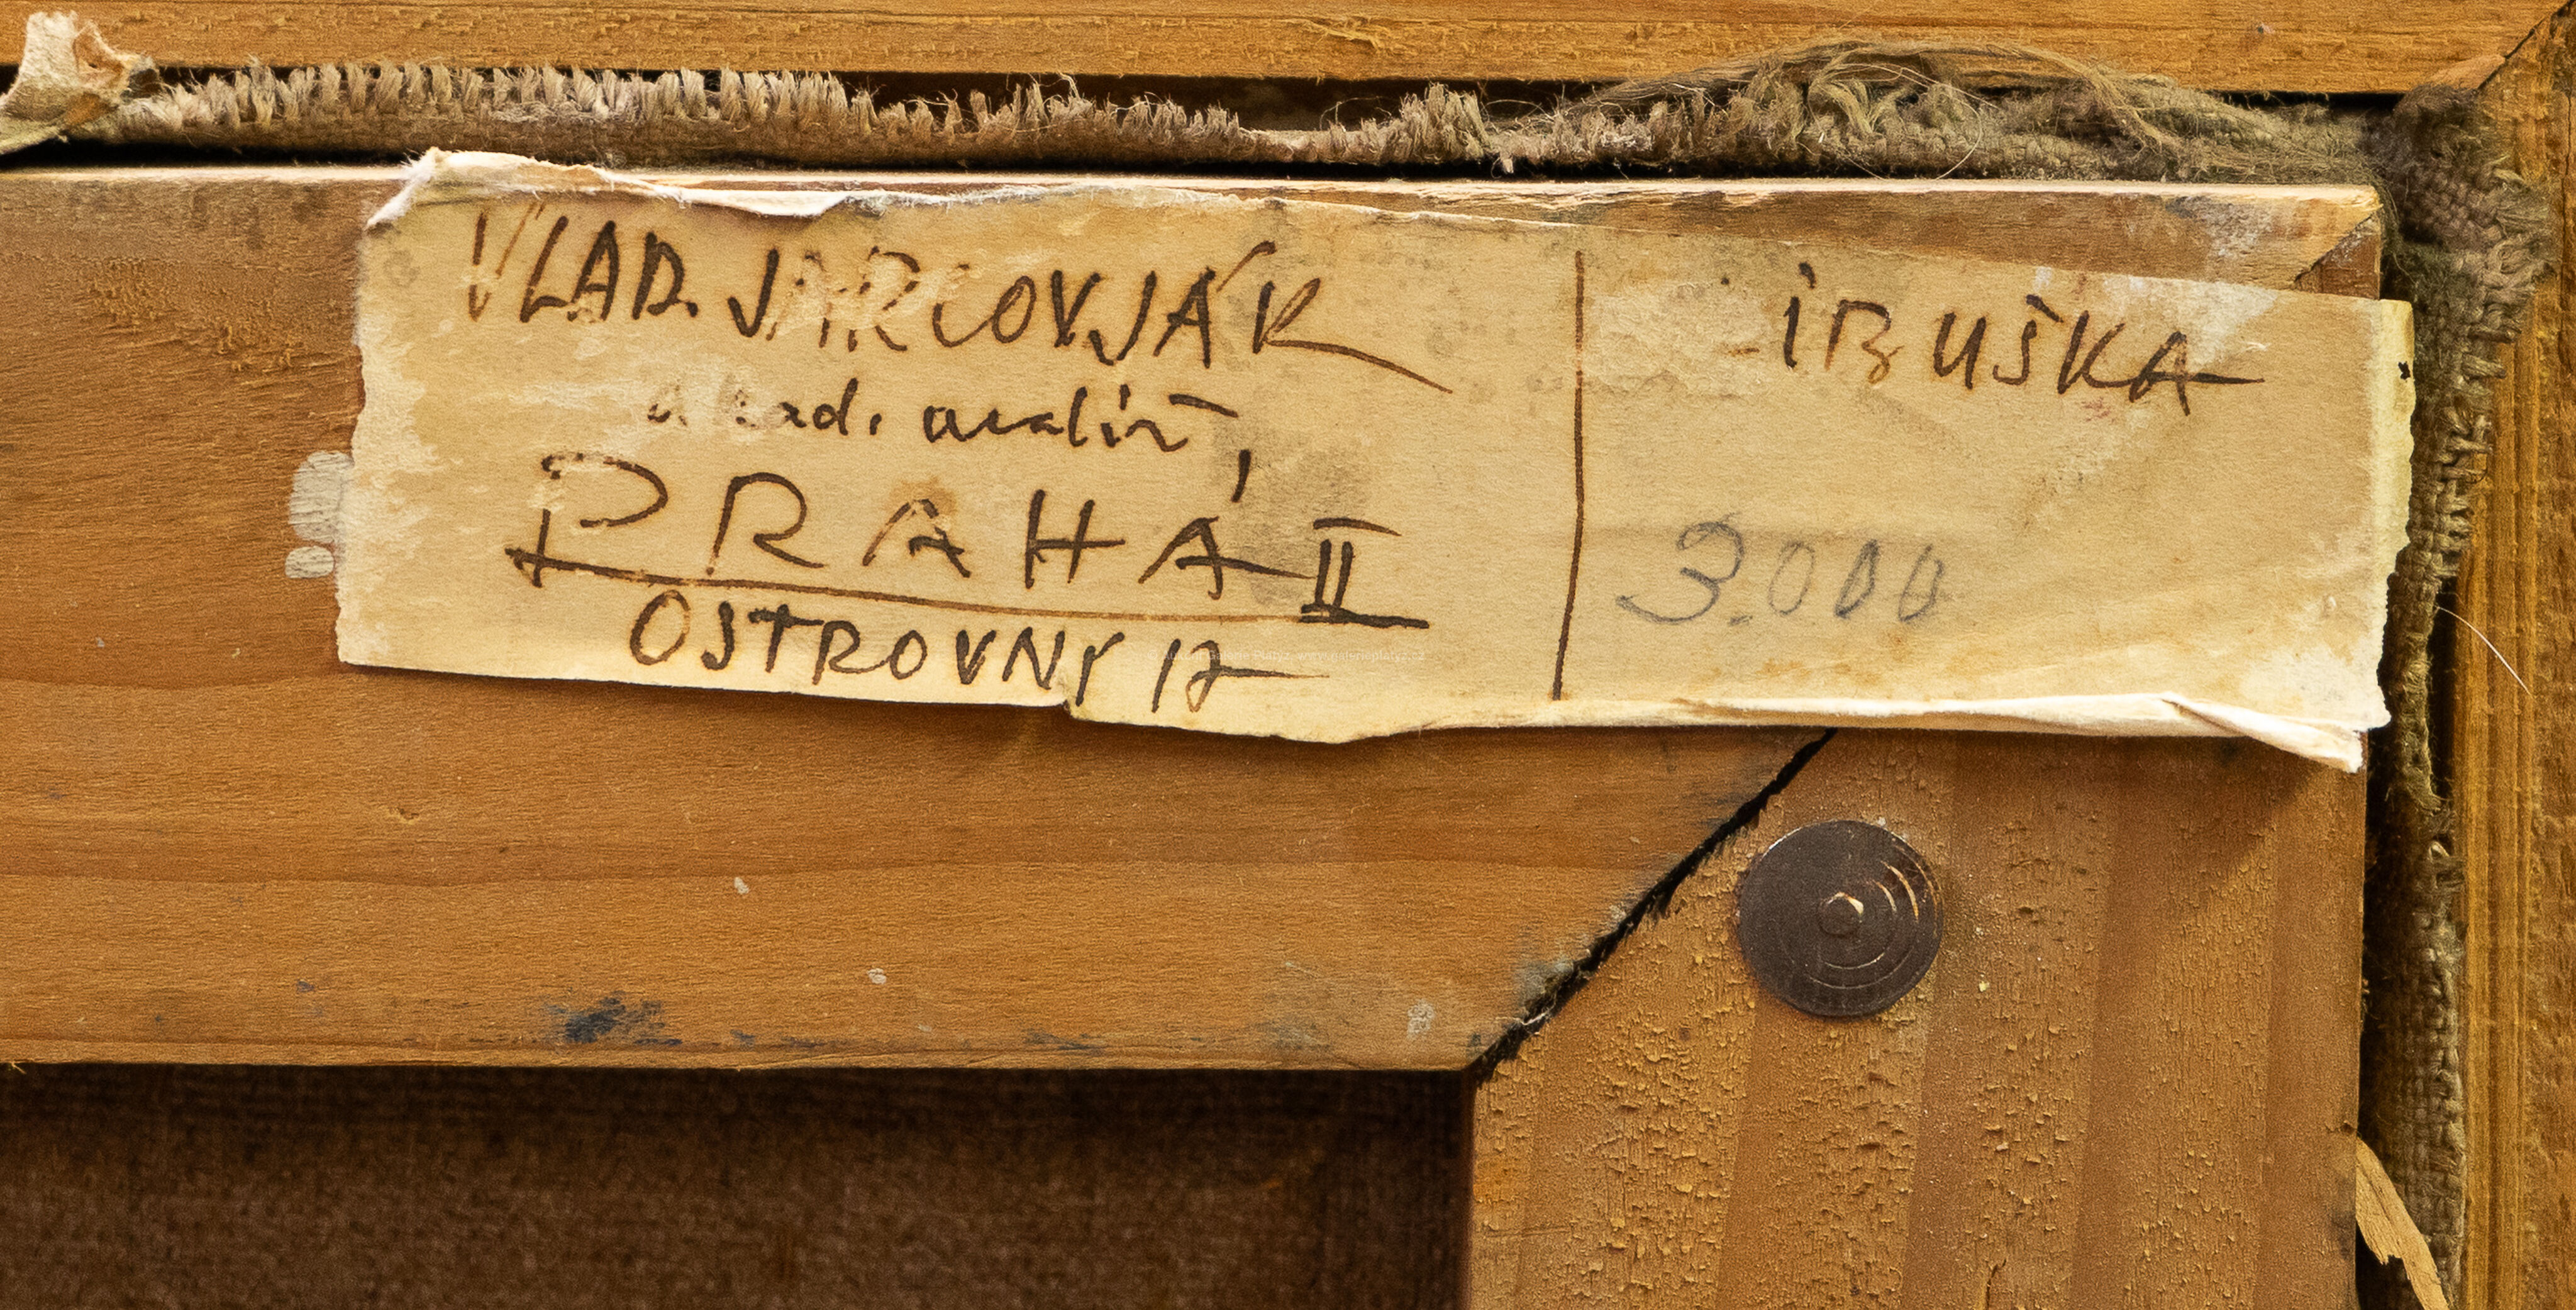 VLAD. JARCOVJÁK
akad. malíř,
PRAHA II
OSTROVNÍ 17
3.000